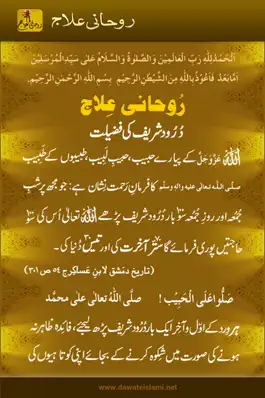 روحانی علاج
اَلْحَمْدُ لِلّٰہِ رَبِّ الْعَالَمِیْنَ وَالصَّلٰوۃُ وَالسَّلَامُ عَلٰی سَیِّدِ الْمُرْسَلِیْنَ
اَمَّا بَعْدُ فَاَعُوْذُ بِاللّٰہِ مِنَ الشَّیْطٰنِ الرَّجِیْمِ بِسْمِ اللّٰہِ الرَّحْمٰنِ الرَّحِیْمِ
رُوحانی عِلاج
دُرُود شریف کی فضیلت
اللہ عَزَّوَجَلَّ کے پیارے حبیب، حبیبِ لَبِیب، طبیبوں کے طَبِیب
صلَّی اللہ تعالٰی علیہ واٰلہٖ وسلَّم کا فرمانِ رَحمت نِشان ہے: جو مجھ پر شبِ
جُمُعہ اور روزِ جُمُعہ سو بار دُرُود شریف پڑھے اللہ تعالٰی اُس کی سو
حاجتیں پوری فرمائے گا ستّر آخرت کی اور تیس دُنیا کی۔
(تاریخ دمشق لابن عساکر ج ۵۴ ص ۳۰۱)
صَلُّوا عَلَی الْحَبِیْب! صلَّی اللہُ تعالٰی علٰی محمَّد
ہر وِرد کے اوّل و آخر ایک بار دُرود شریف پڑھ لیجئے، فائدہ ظاہر نہ
ہونے کی صورت میں شکوہ کرنے کے بجائے اپنی کوتاہیوں کی
www.dawateislami.net